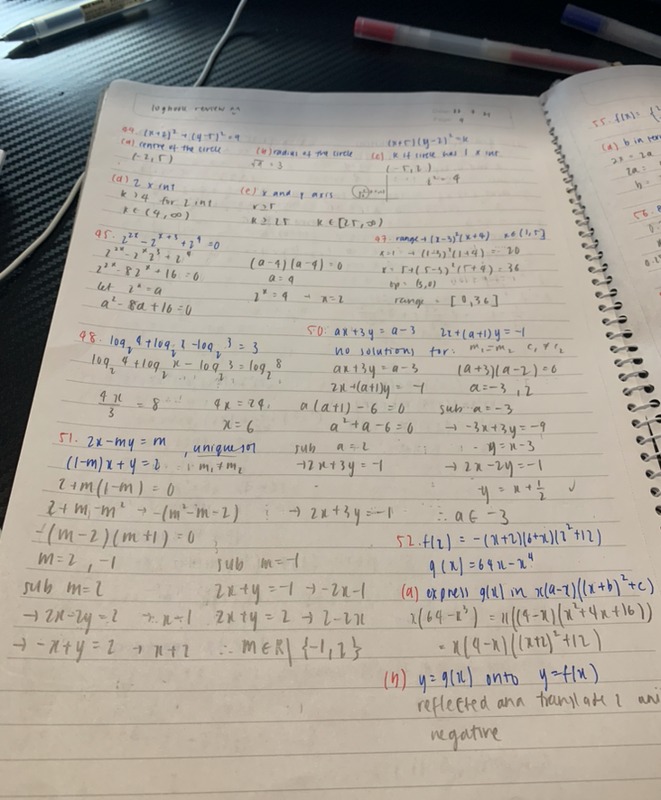 logbook review
44. (x+2)² + (y-5)² = 9
(a) centre of the circle
(-2, 5)
(b) radius of the circle
√9 = 3
(d) 2 x int
k > 4 for 2 int
k ∈ (4, ∞)
(e) x and y axis
k ≥ 25 k ∈ [25, ∞)
45. 2²ˣ - 2ˣ⁺³ + 2⁴ = 0
2²ˣ - 2ˣ2³ + 2⁴
2²ˣ - 8 2ˣ + 16 = 0
let 2ˣ = a
a² - 8a + 16 = 0
(a-4)(a-4) = 0
a = 4
2ˣ = 4 → x = 2
47. range → (x-3)²(x+4) x ∈ (1, 5]
x = 1 → (1-3)²(1+4) = 20
x = 5 → (5-3)²(5+4) = 36
tp = (3, 0)
range = [0, 36]
48. log₂4 + log₂x - log₂3 = 3
log₂4 + log₂x - log₂3 = log₂8
4x/3 = 8
4x = 24
x = 6
50. ax + 3y = a - 3 2x + (a+1)y = -1
no solutions for: m₁ = m₂ c₁ ≠ c₂
ax + 3y = a - 3
2x + (a+1)y = -1
a(a+1) - 6 = 0
a² + a - 6 = 0
(a+3)(a-2) = 0
a = -3, 2
sub a = -3
→ -3x + 3y = -9
y = x - 3
→ 2x - 2y = -1
y = x + 1/2
sub a = 2
→ 2x + 3y = -1
→ 2x + 3y = -1
∴ a ∈ -3
51. 2x - my = m , unique sol
(1-m)x + y = 2 ∴ m₁ ≠ m₂
2 + m(1-m) = 0
2 + m - m² → -(m² - m - 2)
-(m-2)(m+1) = 0
m = 2, -1
sub m = 2
→ 2x - 2y = 2 → x - 1
→ -x + y = 2 → x + 2
sub m = -1
2x + y = -1 → -2x - 1
2x + y = 2 → 2 - 2x
∴ m ∈ R \ {-1, 2}
52. f(x) = -(x+2)(6+x)(x²+12)
g(x) = 64x - x⁴
(a) express g(x) in x(a-x)((x+b)²+c)
x(64 - x³) = x((4-x)(x²+4x+16))
= x(4-x)((x+2)²+12)
(b) y = g(x) onto y = f(x)
reflected and translate 2
negative
55. f(x) =
(a) b in
2x = 2a
2a =
b =
56.